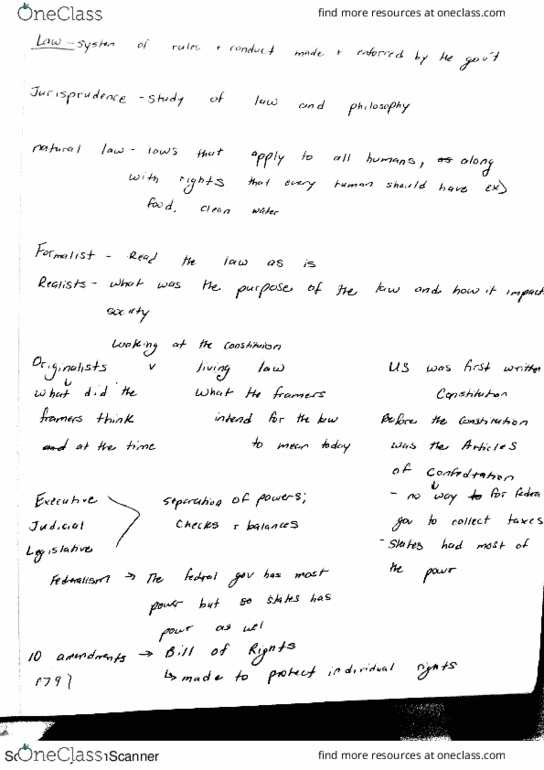 OneClass
find more resources at oneclass.com
Law - system of rules + conduct made + enforced by the gov't
Jurisprudence - study of law and philosophy
natural law - laws that apply to all humans, as along
with rights that every human should have ex)
food, clean water
Formalist - Read the law as is
Realists - what was the purpose of the law and how it impact
society
Looking at the constitution
Originalists v living law
what did the framers think and at the time
What the framers intend for the law to mean today
US was first written
Constitution
Before the Constitution
was the Articles
of Confedration
- no way to for federa
gov to collect taxes
- States had most of
the powr
Executive
Judicial
Legislative
Separation of powers;
Checks + balances
Federalism → The federal gov has most
power but so states has
powr as well
10 amendments → Bill of Rights
1791
↳ made to protect individual rights
OneClass
Scanner
find more resources at oneclass.com